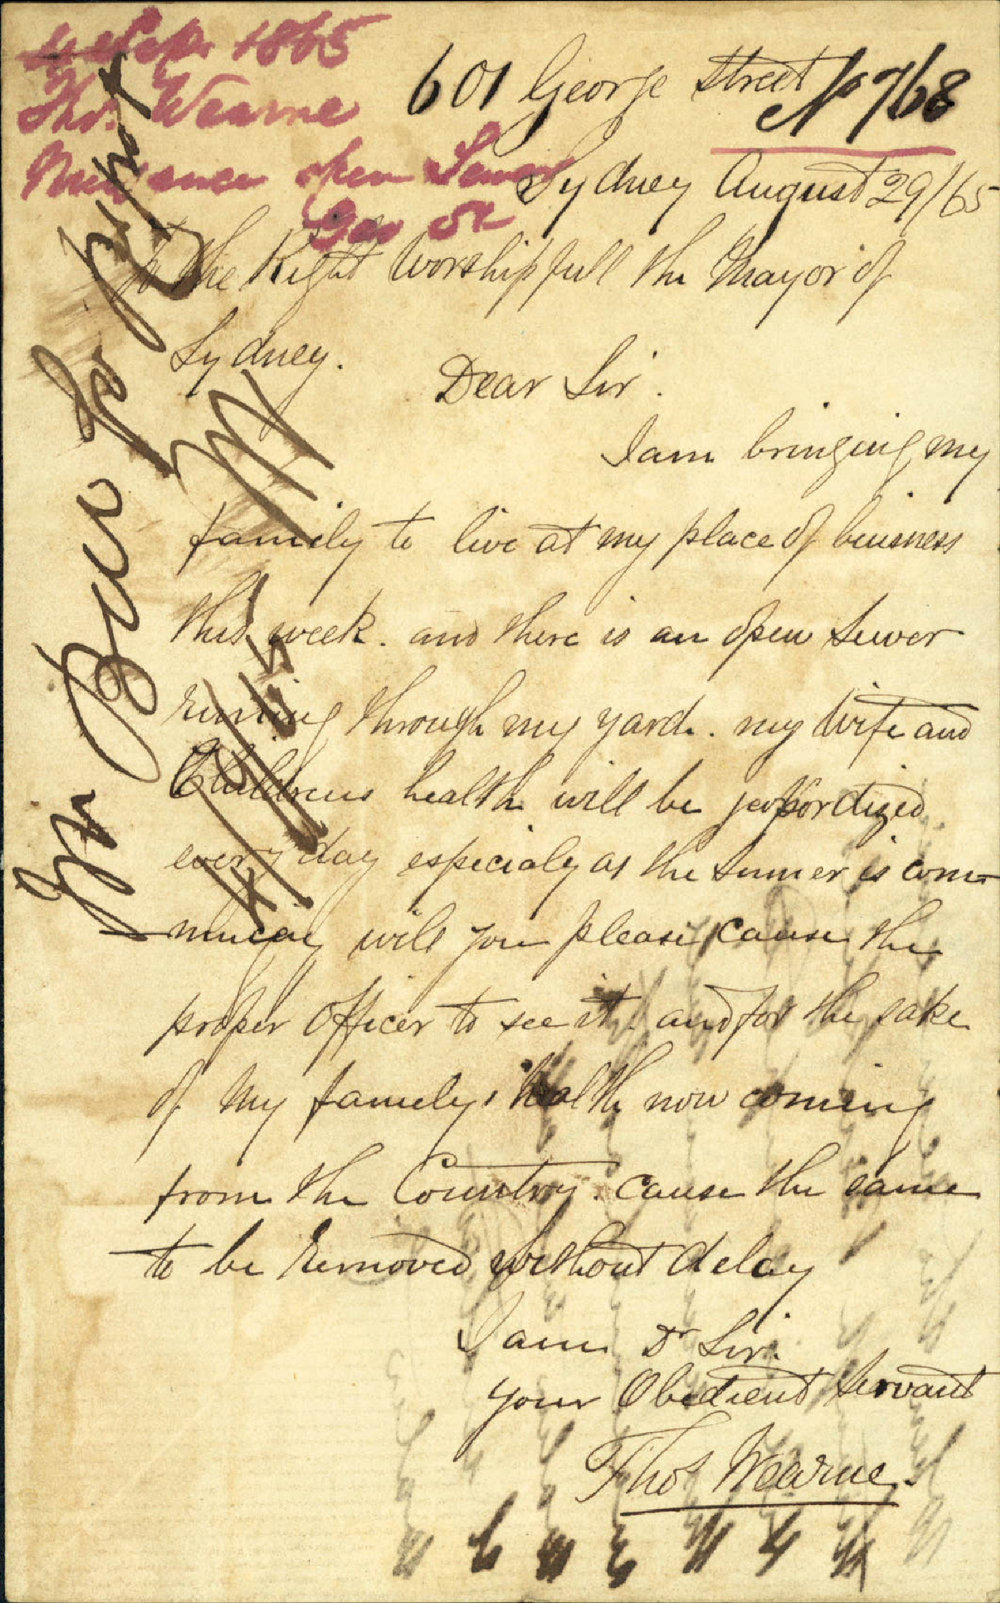 4 Sep 1865
Thos. Wearne
Nuisance open Sewer
Geo St
No 768
601 George Street
Sydney August 29/65
To the Right Worshipfull the Mayor of
Sydney.
Dear Sir.
I am bringing my
family to live at my place of buisness
this week. and there is an open Sewer
runing through my yard. my Wife and
Childrens health will be jeopordized
every day especialy as the Sumer is com-
mencing will you please cause the
proper Officer to see it and for the sake
of my familys health now coming
from the Country. cause the same
to be removed without delay
I am Dr Sir.
your Obedient Servant
Thos Wearne.
Mr Bur to Report
4/9/65